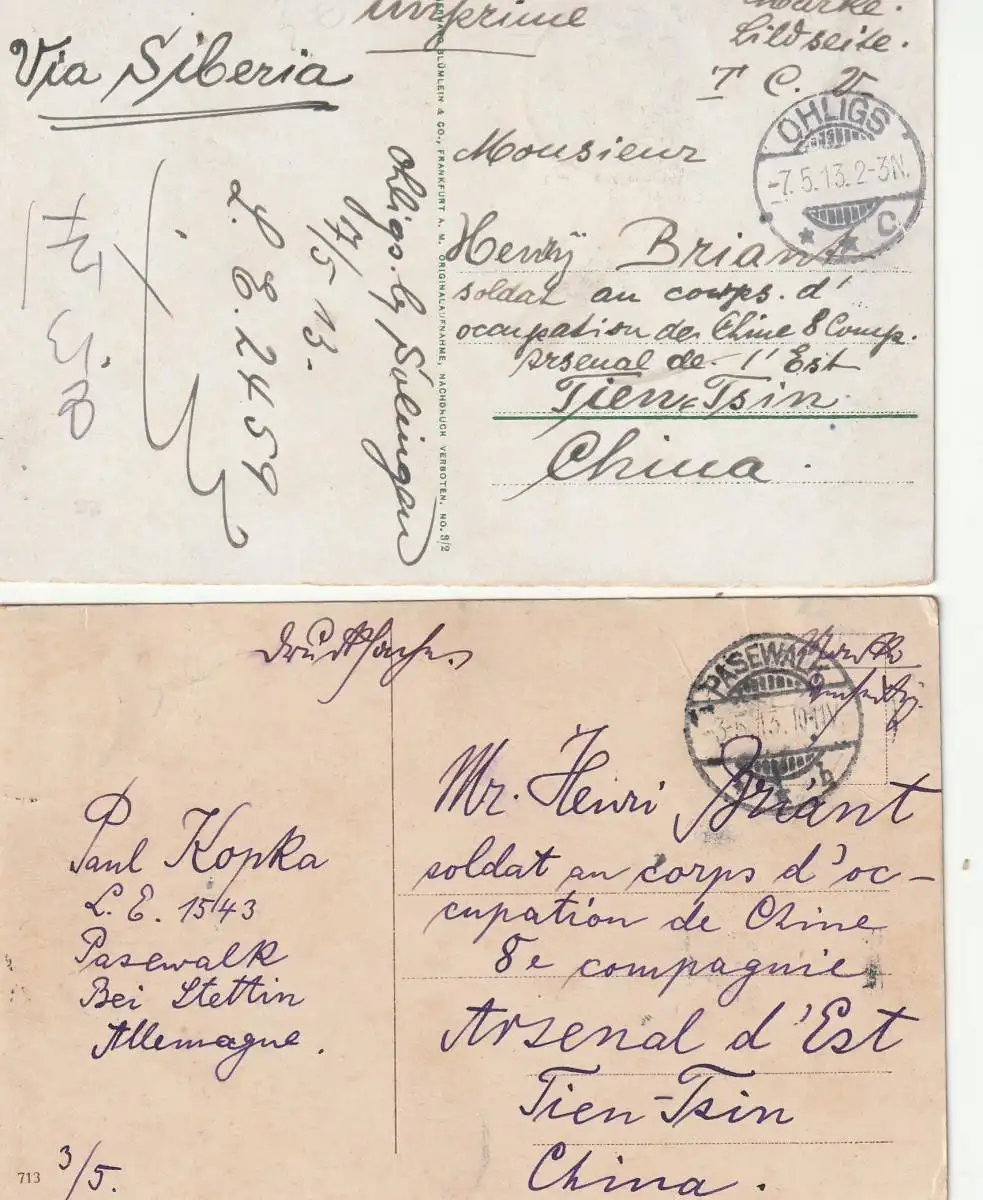 Imprimé
Marke.
Bildseite.
T C. V
Via Siberia
OHLIGS
-7.5.13.2-3N.
C.
Monsieur
Henrÿ Briant
soldat au corps. d'
occupation de Chine 8 Comp.
Arsenal de l'Est
Tien-Tsin.
China.
BLÜMLEIN & CO., FRANKFURT A. M. ORIGINALAUFNAHME, NACHDRUCK VERBOTEN. NO. 3/2
Ohligs. b/ Solingen
7/5 13.
L. E. 2459
Drucksache.
PASEWALK
13. 10-11V.
b
Marke
Mr. Henri Briant
soldat au corps d'oc-
cupation de Chine
8e compagnie
Arsenal d'Est
Tien-Tsin
China.
Paul Kopka
L. E. 1543
Pasewalk
Bei Stettin
Allemagne.
3/5.
713